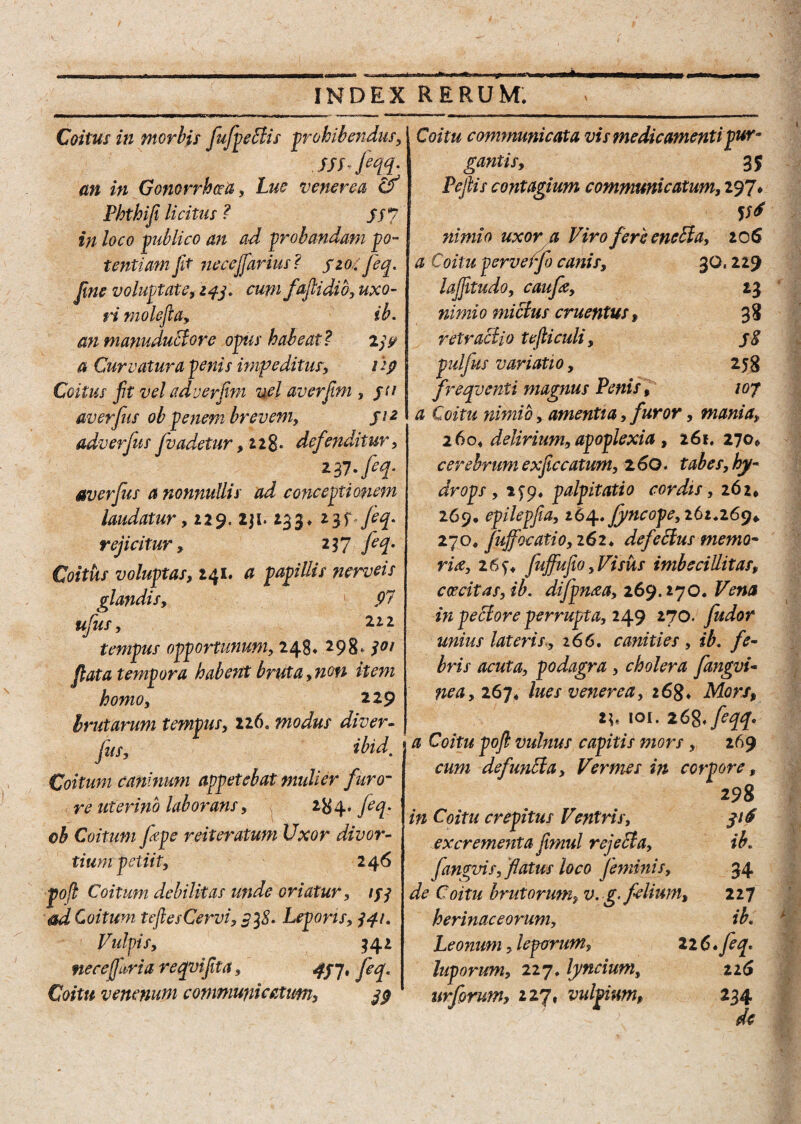 INDEX RERUM.
Coitus in morbis suspectis prohibendus,
555. seqq.
an in Gonorrhœa, Lue venerea &
Phthisi licitus ? 557
in loco publico an ad probandam po-
tentiam sit necessarius ? 520. seq.
sine voluptate, 243. cum fastidio, uxo-
ri molesta, ib.
an manuductore opus habeat ? 239
a Curvatura penis impeditus, 119
Coitus fit vel adversim vel aversim , 511
aversus ob penem brevem, 512
adversus svadetur , 228. defenditur,
237. seq.
aversus a nonnullis ad conceptionem
laudatur , 229. 231. 233. 235. seq.
rejicitur , 237 seq.
Coitûs voluptas, 241. a papillis nerveis
glandis, 97
usus, 222
tempus opportunum, 248. 298. 301
stata tempora habent bruta, non item
homo, 229
brutarum tempus, 226. modus diver-
sus, ibid.
Coitum caninum appetebat mulier furo-
re uterino laborans, 284. seq.
ob Coitum sæpe reiteratum Uxor divor-
tium petiit, 246
post Coitum debilitas unde oriatur, 153
ad Coitum testes Cervi, 338. Leporis, 341.
Vulpis, 342
necessaria reqvisita, 457. seq.
Coitu venenum communicatum, 39
Coitu communicata vis medicamenti pur-
gantis, 35
Pestis contagium communicatum, 297.
556
nimio uxor a Viro fere enecta, 206
a Coitu perverso canis, 30. 229
lassitudo, causæ, 23
nimio mictus cruentus, 38
retractio testiculi, 58
pulsus variatio, 258
freqventi magnus Penis, 107
a Coitu nimio, amentia, furor, mania,
260. delirium, apoplexia , 261. 270.
cerebrum exsiccatum, 260. tabes, hy-
drops , 259. palpitatio cordis, 262.
269. epilepsia, 264. syncope, 261.269.
270. suffocatio, 262. defectus memo-
riæ, 265. suffusio, Visûs imbecillitas,
cœcitas, ib. dispnæa, 269. 270. Vena
in pectore perrupta, 249 270. sudor
unius lateris, 266. canities , ib. fe-
bris acuta, podagra , cholera sangvi-
nea, 267. lues venerea, 268. Mors,
23. 101. 268. seqq.
a Coitu post vulnus capitis mors , 269
cum defuncta, Vermes in corpore,
298
in Coitu crepitus Ventris, 316
excrementa simul rejecta, ib.
sangvis, flatus loco seminis, 34
de Coitu brutorum, v. g. felium, 227
herinaceorum, ib.
Leonum, leporum, 226. seq.
luporum, 227. lyncium, 226
ursorum, 227, vulpium, 234
de